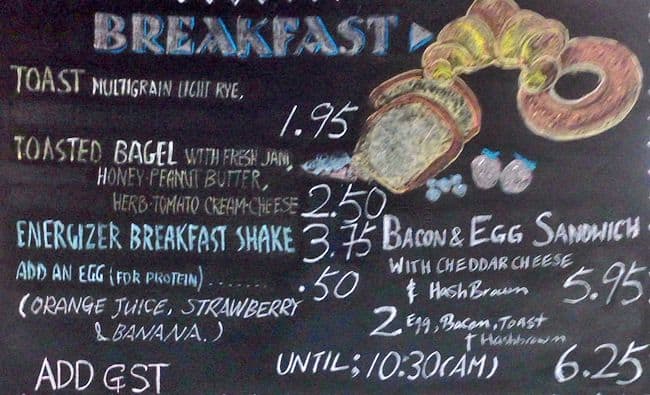 BREAKFAST
TOAST MULTIGRAIN LIGHT RYE,
1.95
TOASTED BAGEL WITH FRESH JAM,
HONEY-PEANUT BUTTER,
HERB-TOMATO CREAM-CHEESE 2.50
ENERGIZER BREAKFAST SHAKE 3.75
ADD AN EGG (FOR PROTEIN)....... .50
(ORANGE JUICE, STRAWBERRY
& BANANA.)
BACON & EGG SANDWICH
WITH CHEDDAR CHEESE
& HashBrown 5.95
2 Egg, Bacon, Toast
& Hashbrown
6.25
UNTIL; 10:30(AM)
ADD GST